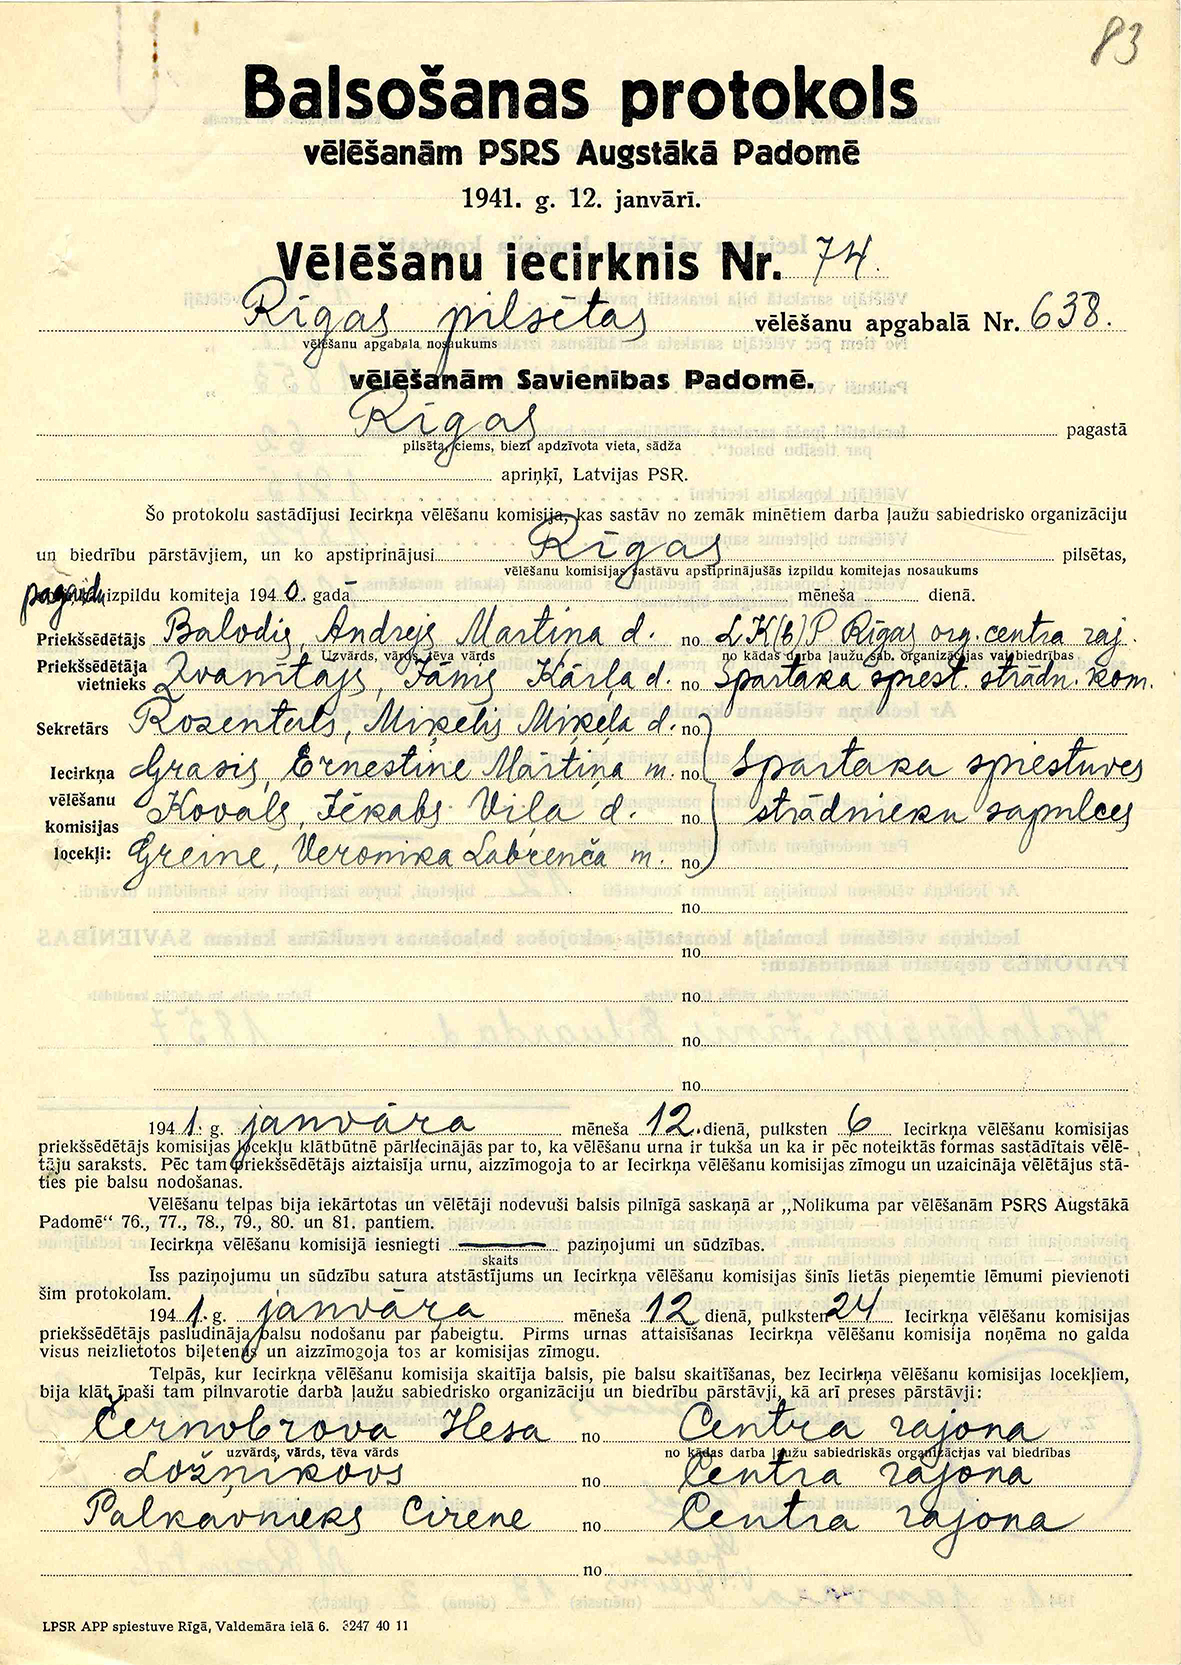 83
Balsošanas protokols
vēlēšanām PSRS Augstākā Padomē
1941. g. 12. janvārī.
Vēlēšanu iecirknis Nr. 74.
Rīgas pilsētas vēlēšanu apgabalā Nr. 638.
vēlēšanu apgabala nosaukums
vēlēšanām Savienības Padomē.
Rīgas pagastā
pilsēta, ciems, biezi apdzīvota vieta, sādža
apriņķī, Latvijas PSR.
Šo protokolu sastādījusi Iecirkņa vēlēšanu komisija, kas sastāv no zemāk minētiem darba ļaužu sabiedrisko organizāciju
un biedrību pārstāvjiem, un ko apstiprinājusi Rīgas pilsētas,
vēlēšanu komisijas sastāvu apstiprinājušās izpildu komitejas nosaukums
pagaidu izpildu komiteja 1940. gada mēneša dienā.
Priekšsēdētājs Balodis, Andrejs Martiņa d. no LK(b)P Rīgas org. centra raj.
Uzvārds, vārds, tēva vārds no kādas darba ļaužu sab. organizācijas vai biedrības
Priekšsēdētāja
vietnieks Zvanītājs, Jānis Kārļa d. no Spartaka spiest. strādn. kom.
Sekretārs Rozentals, Miķelis Miķeļa d. no
Iecirkņa Grasis, Ernestine Mārtiņa m. no Spartaka spiestuves
vēlēšanu
komisijas Kovals, Jēkabs Viļa d. no strādnieku sapulces
locekļi: Greine, Veronika Labrenča m. no
no
no
no
no
no
1941. g. janvāra mēneša 12. dienā, pulksten 6 Iecirkņa vēlēšanu komisijas
priekšsēdētājs komisijas locekļu klātbūtnē pārliecinājās par to, ka vēlēšanu urna ir tukša un ka ir pēc noteiktās formas sastādītais vēlē-
tāju saraksts. Pēc tam priekšsēdētājs aiztaisīja urnu, aizzīmogoja to ar Iecirkņa vēlēšanu komisijas zīmogu un uzaicināja vēlētājus stā-
ties pie balsu nodošanas.
Vēlēšanu telpas bija iekārtotas un vēlētāji nodevuši balsis pilnīgā saskaņā ar „Nolikuma par vēlēšanām PSRS Augstākā
Padomē“ 76., 77., 78., 79., 80. un 81. pantiem.
Iecirkņa vēlēšanu komisijā iesniegti — paziņojumi un sūdzības.
skaits
Īss paziņojumu un sūdzību satura atstāstījums un Iecirkņa vēlēšanu komisijas šinīs lietās pieņemtie lēmumi pievienoti
šim protokolam.
1941. g. janvāra mēneša 12 dienā, pulksten 24 Iecirkņa vēlēšanu komisijas
priekšsēdētājs pasludināja balsu nodošanu par pabeigtu. Pirms urnas attaisīšanas Iecirkņa vēlēšanu komisija noņēma no galda
visus neizlietotos biļetenus un aizzīmogoja tos ar komisijas zīmogu.
Telpās, kur Iecirkņa vēlēšanu komisija skaitīja balsis, pie balsu skaitīšanas, bez Iecirkņa vēlēšanu komisijas locekļiem,
bija klāt īpaši tam pilnvarotie darba ļaužu sabiedrisko organizāciju un biedrību pārstāvji, kā arī preses pārstāvji:
Černobrova Hesa no Centra rajona
uzvārds, vārds, tēva vārds no kādas darba ļaužu sabiedriskās organizācijas vai biedrības
Ložņikovs no Centra rajona
Palkavnieks Cirene no Centra rajona
no
LPSR APP spiestuve Rīgā, Valdemāra ielā 6. 3247 40 11